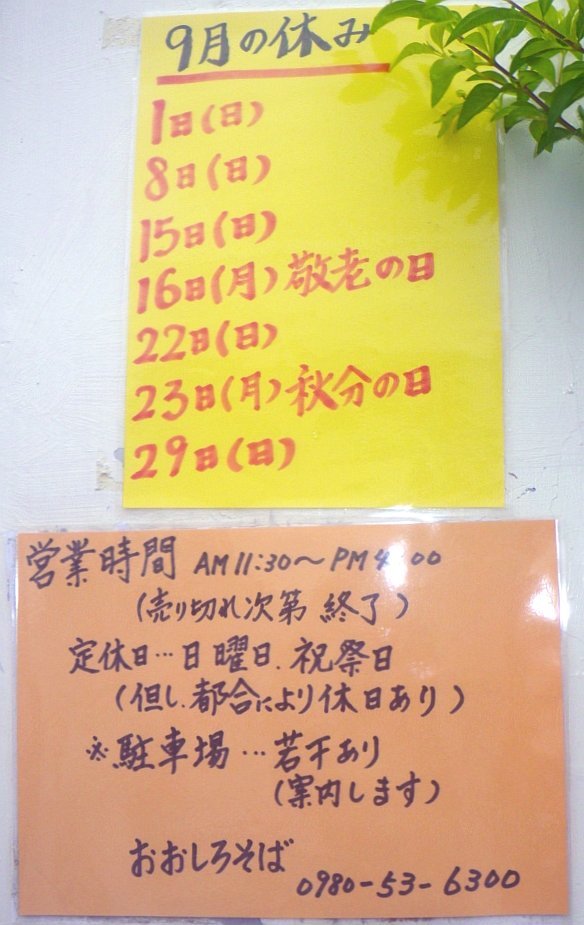 9月の休み
1日(日)
8日(日)
15日(日)
16日(月)敬老の日
22日(日)
23日(月)秋分の日
29日(日)
営業時間 AM11:30〜PM4:00
(売り切れ次第 終了)
定休日…日曜日.祝祭日
(但し.都合により休日あり)
※駐車場…若干あり
(案内します)
おおしろそば
0980-53-6300